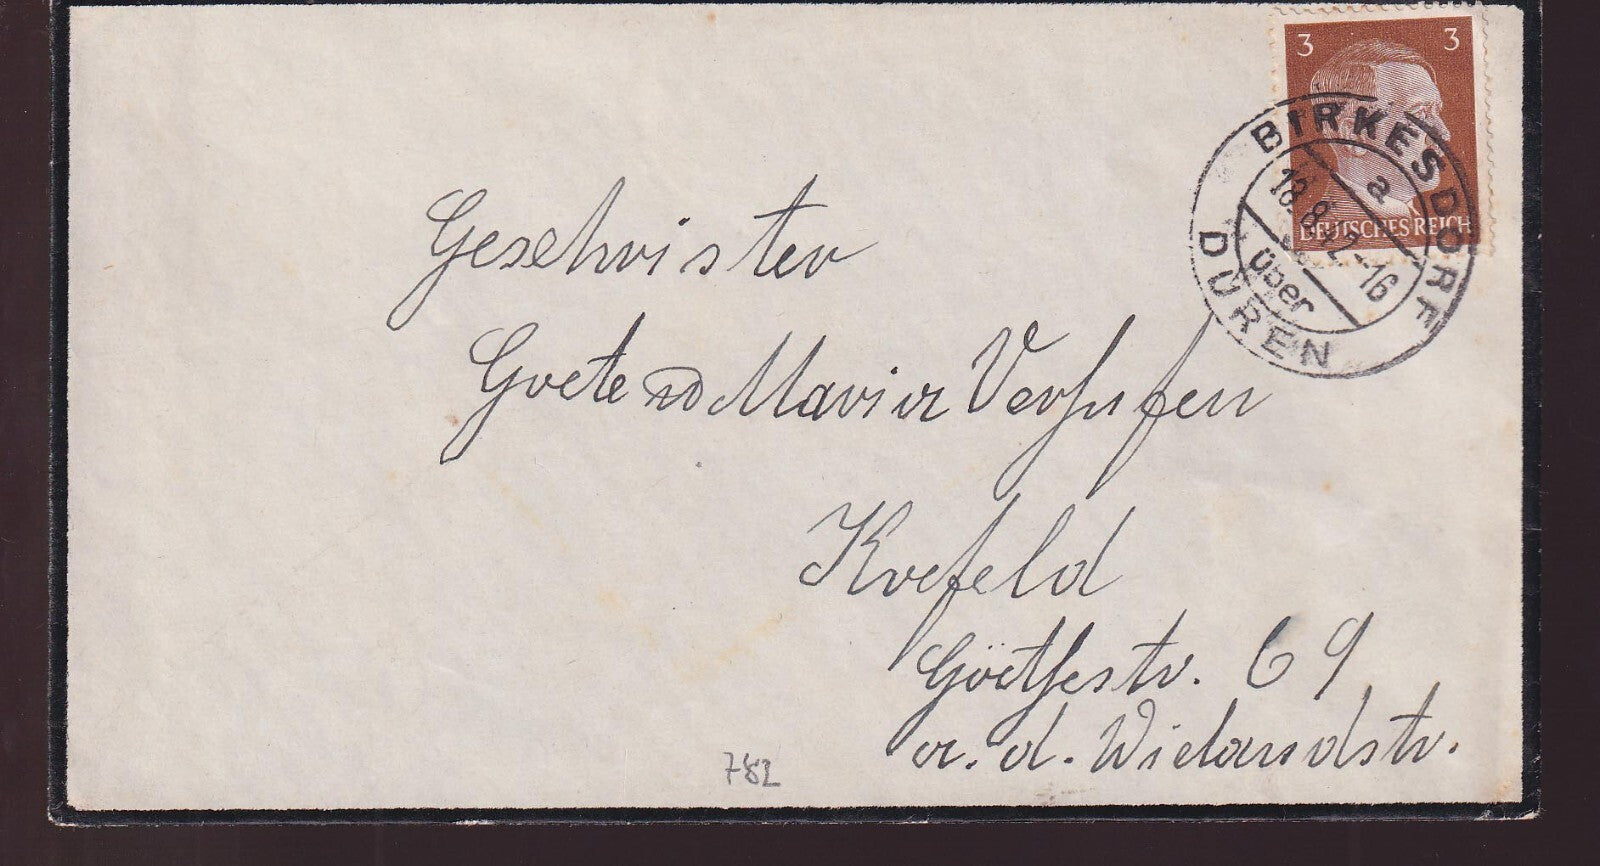 3 3
DEUTSCHES REICH
BIRKESDORF
a
18.8.42-16
über
DÜREN
Geschwister
Grete und Maria Verhufen
Krefeld
Göethestr. 69
a. d. Wielandstr.
782